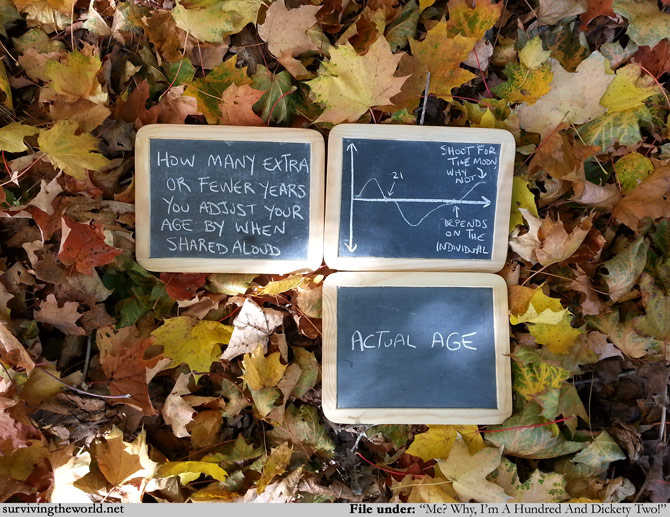 HOW MANY EXTRA
OR FEWER YEARS
YOU ADJUST YOUR
AGE BY WHEN
SHARED ALOUD
SHOOT FOR
THE MOON,
WHY
NOT
21
DEPENDS
ON THE
INDIVIDUAL
ACTUAL AGE
survivingtheworld.net
File under: "Me? Why, I'm A Hundred And Dickety Two!"